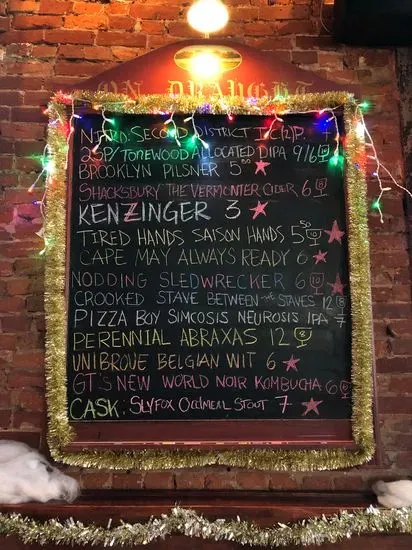 ON DRAUGHT
NITRO: SECOND DISTRICT 7
2SPY TONEWOOD ALLOCATED DIPA 9/16
BROOKLYN PILSNER 5.50
SHACKSBURY THE VERMONTER CIDER 6
KENZINGER 3
TIRED HANDS SAISON HANDS 5.50
CAPE MAY ALWAYS READY 6
NODDING SLEDWRECKER 6
CROOKED STAVE BETWEEN THE STAVES 12
PIZZA BOY SIMCOSIS NEUROSIS IPA 7
PERENNIAL ABRAXAS 12
UNIBROUE BELGIAN WIT 6
GT'S NEW WORLD NOIR KOMBUCHA 6
CASK: SLYFOX OATMEAL STOUT 7